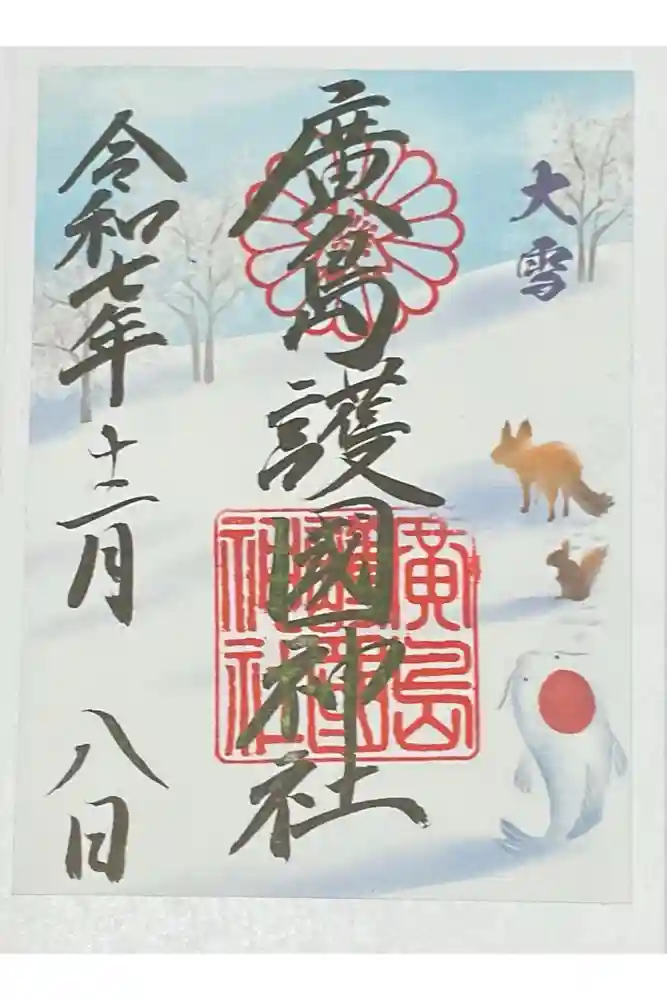 大雪
廣島護國神社
廣島
護國
神社
令和七年十二月 八日